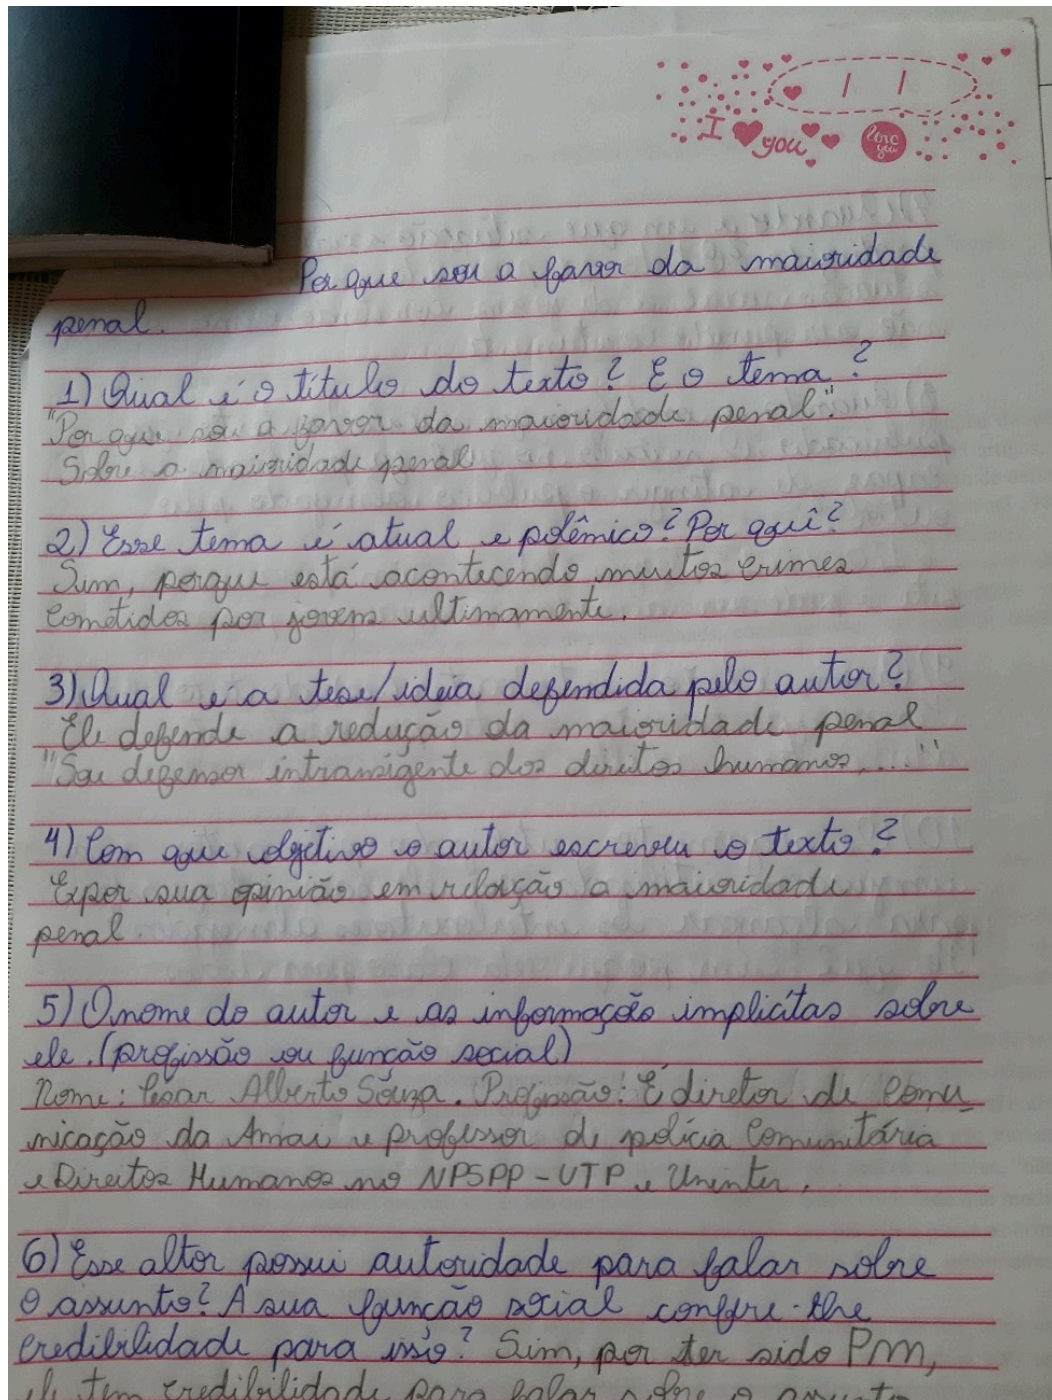 I you
love you
Por que sou a favor da maioridade
penal.
1) Qual é o título do texto? E o tema?
"Por que sou a favor da maioridade penal".
Sobre a maioridade penal
2) Esse tema é atual e polêmico? Por quê?
Sim, porque está acontecendo muitos crimes
cometidos por jovens ultimamente.
3) Qual é a tese/ideia defendida pelo autor?
Ele defende a redução da maioridade penal
"Sou defensor intransigente dos direitos humanos, ...."
4) Com que objetivo o autor escreveu o texto?
Expor sua opinião em relação a maioridade
penal.
5) O nome do autor e as informações implicítas sobre
ele. (profissão ou função social)
Nome: Cesar Alberto Souza. Profissão: É diretor de comu_
nicação da Amai e professor de polícia Comunitária
e Direitos Humanos no NPSPP - UTP e Uninter.
6) Esse altor possui autoridade para falar sobre
o assunto? A sua função social confere-lhe
credibilidade para isso? Sim, por ter sido Pm,
ele tem credibilidade para falar sobre o assunto